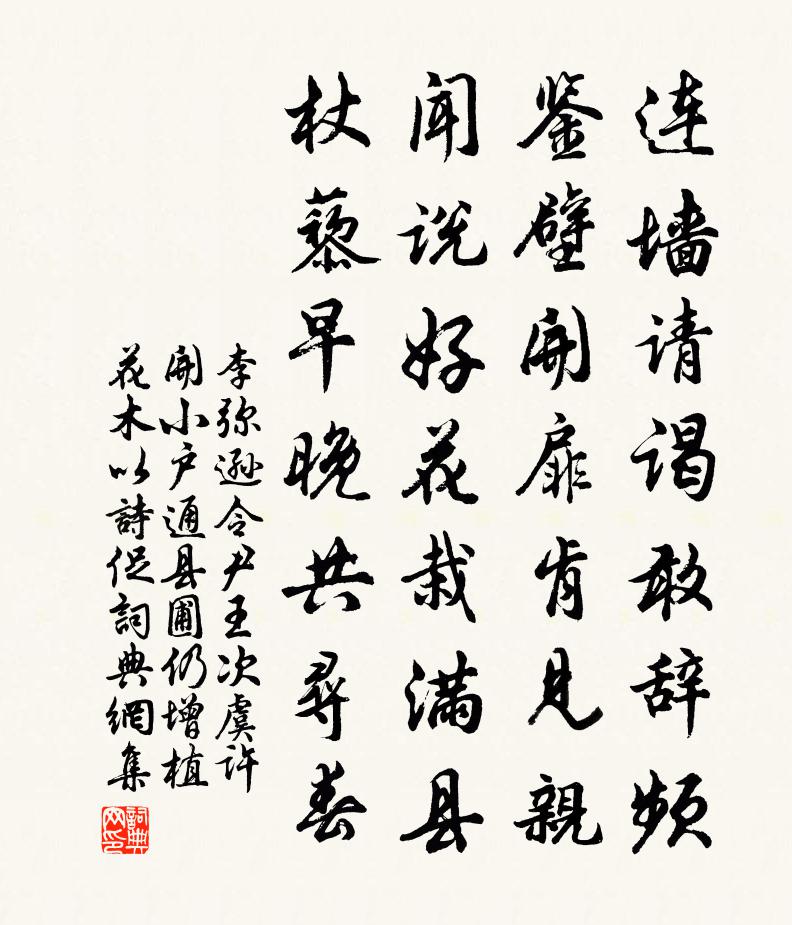 连墙请谒敢辞频
鉴壁開扉肯见親
闻说好花栽满县
杖藜早晚共尋春
李弥遜令尹王次虞许
開小户通县圃仍增植
花木以詩促詞典網集
詞典
网印